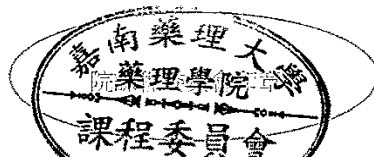 嘉南藥理大學
藥理學院
課程委員會